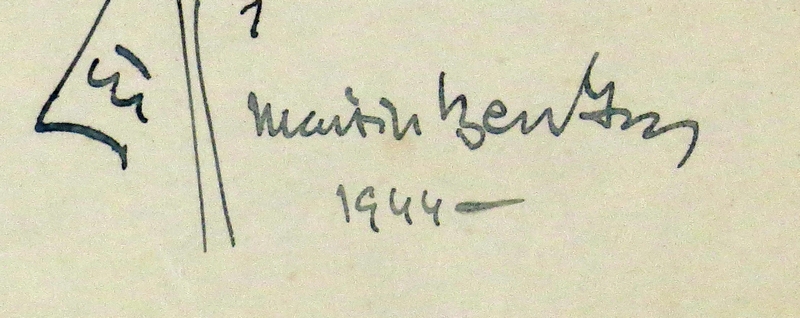 Martin Benton
1944 –